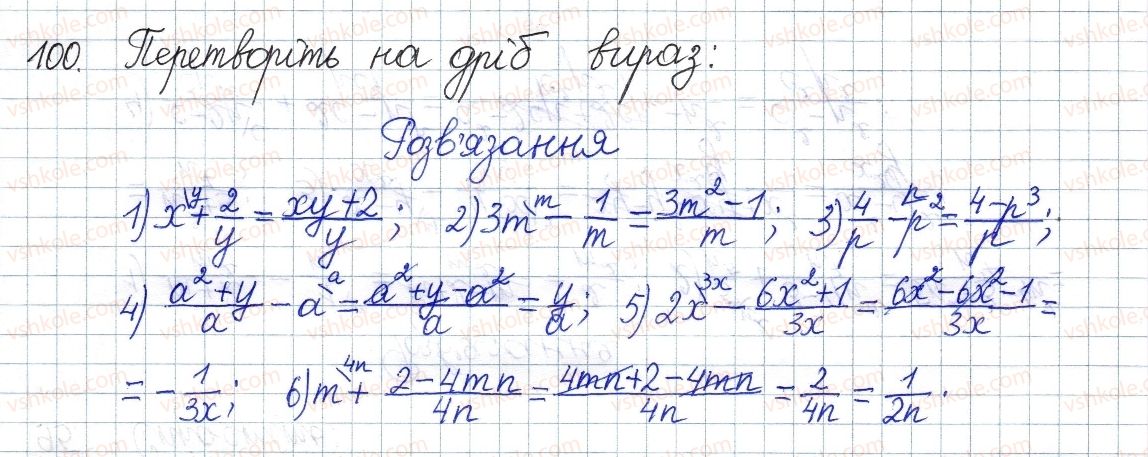 100. Перетворіть на дріб вираз:
Розв'язання
1) x\y + 2/y = (xy+2)/y; 2) 3m\m − 1/m = (3m²−1)/m; 3) 4/p − p²\p = (4−p³)/p;
4) (a²+y)/a − a\a = (a²+y−a²)/a = y/a; 5) 2x\3x − (6x²+1)/3x = (6x²−6x²−1)/3x =
= −1/3x; 6) m\4n + (2−4mn)/4n = (4mn+2−4mn)/4n = 2/4n = 1/2n.